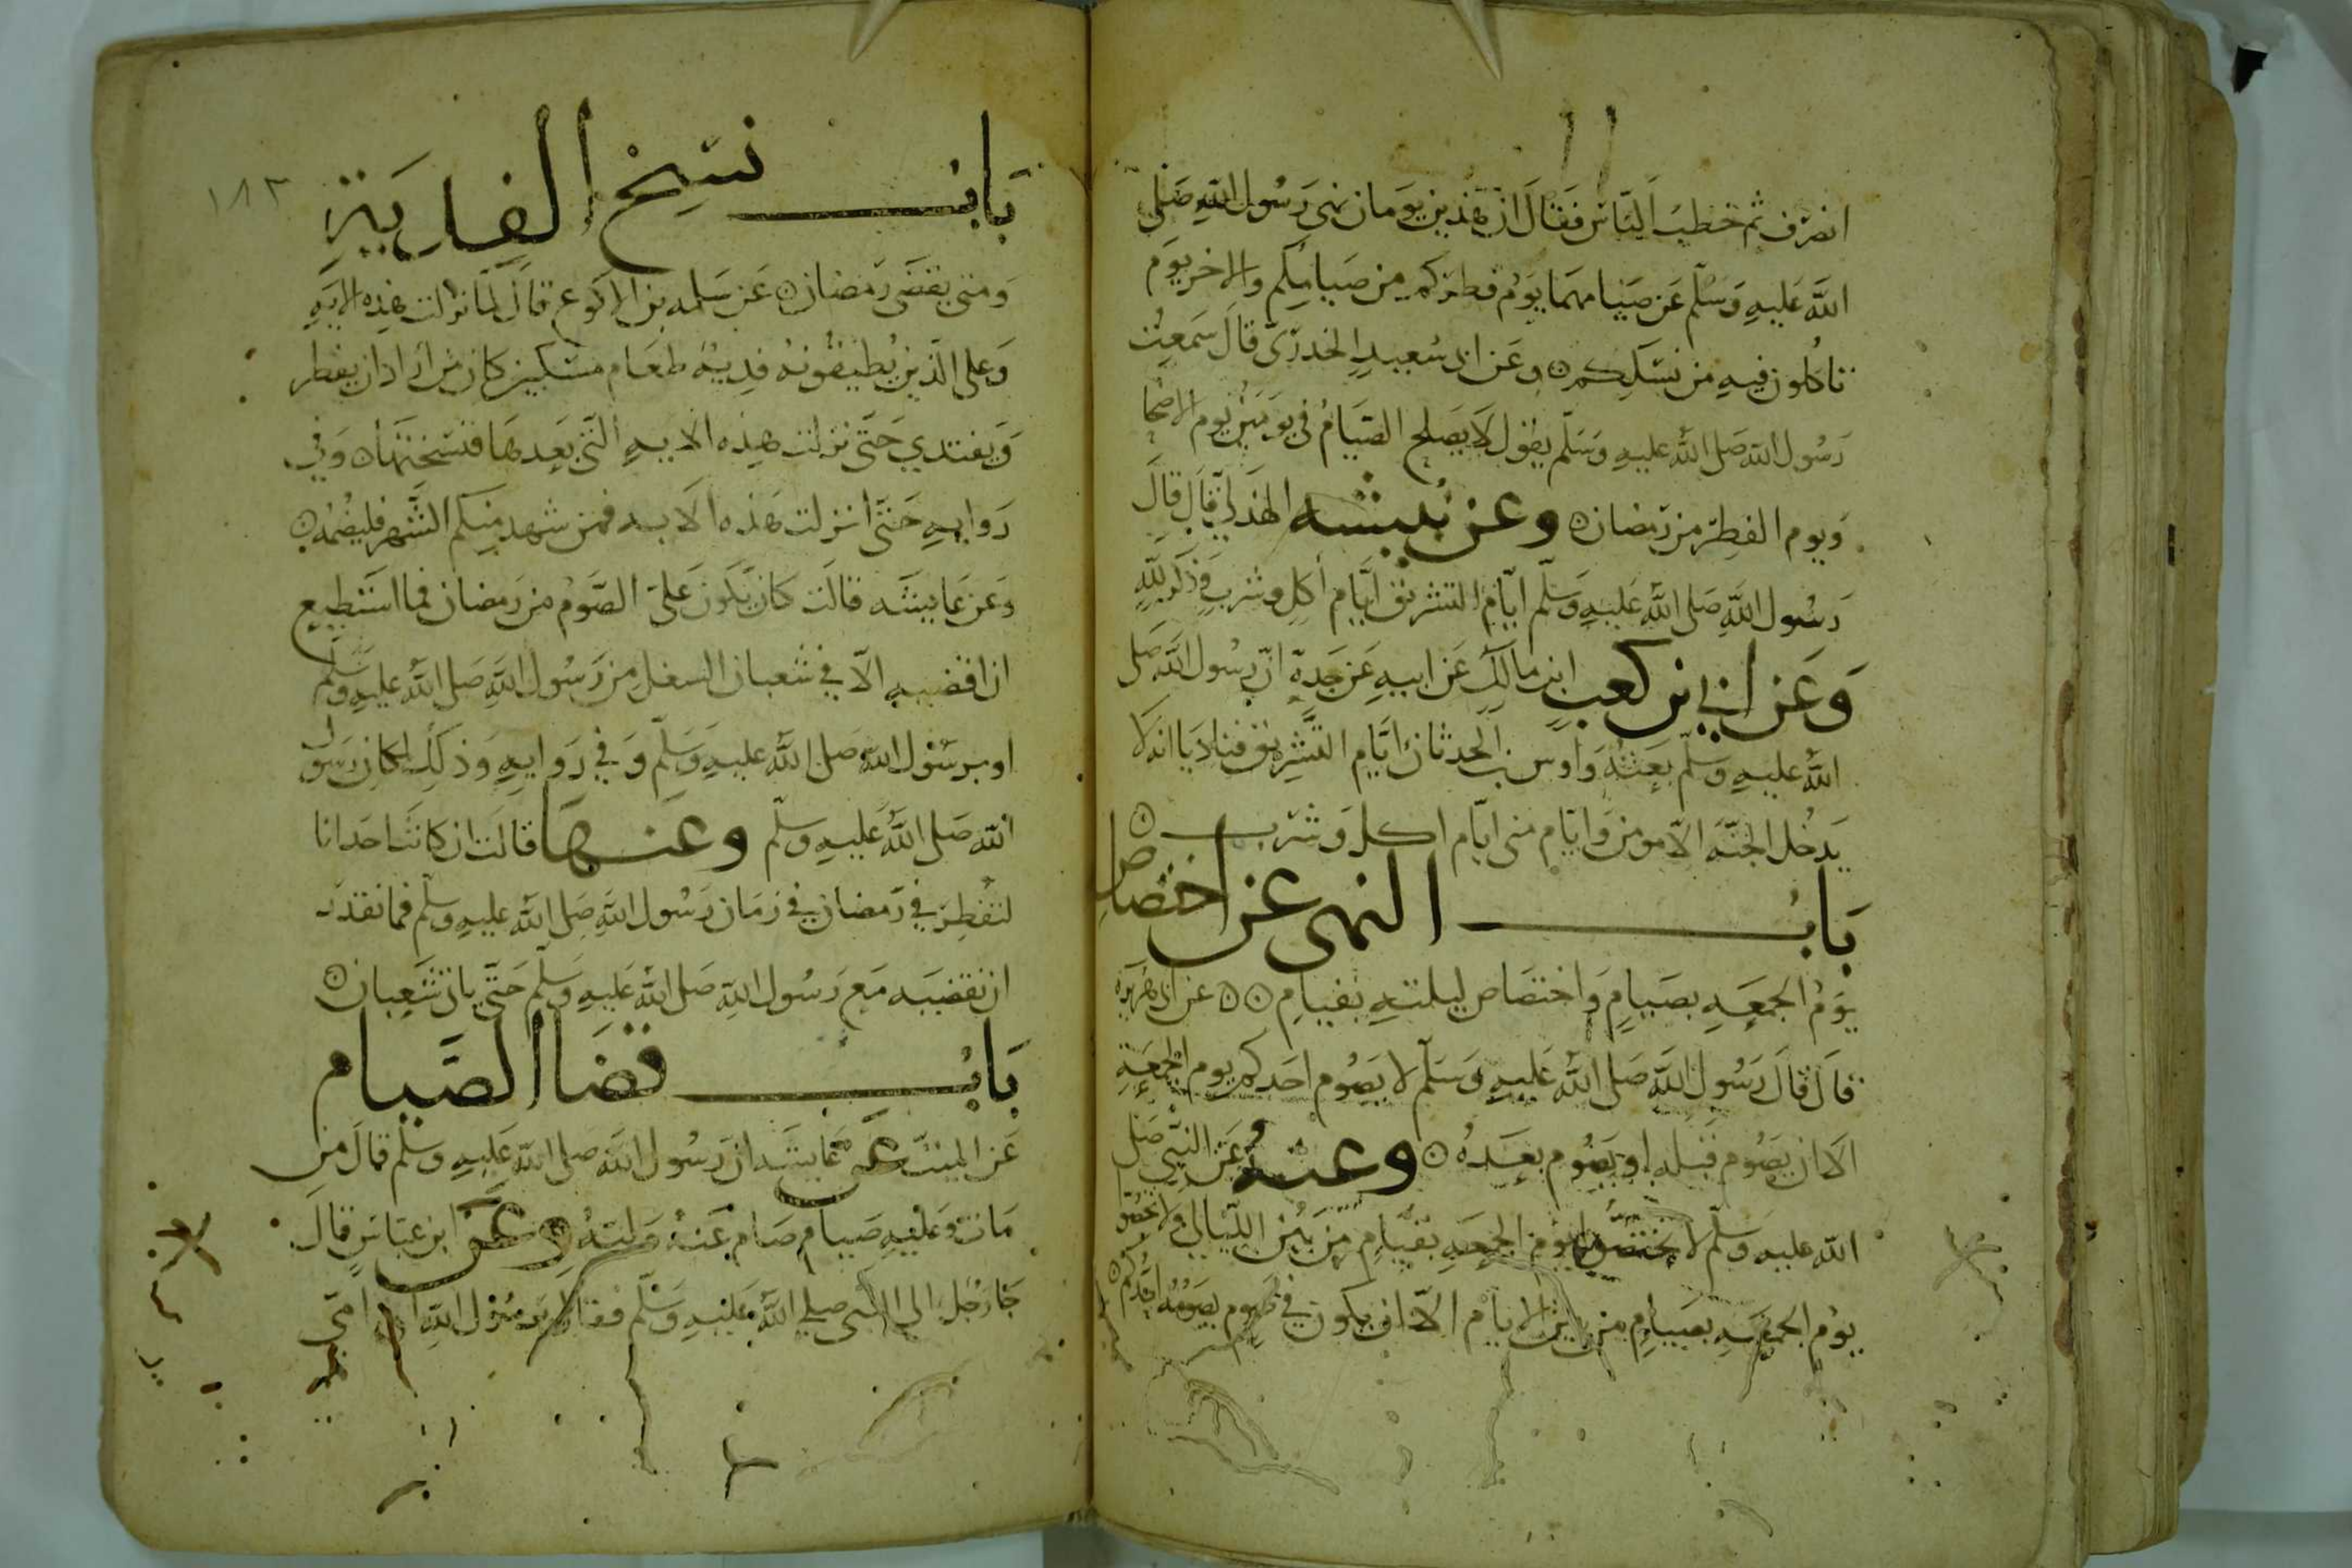 انصرف ثم خطب الناس فقال ان هذين يومان نهى رسول الله صلى
الله عليه وسلم عن صيامهما يوم فطركم من صيامكم والاخر يوم
تاكلون فيه من نسككم وعن ابى سعيد الخدرى قال سمعت
رسول الله صلى الله عليه وسلم يقول لا يصلح الصيام في يومين يوم الاضحا
ويوم الفطر من رمضان وعن نبيشه الهذلي قال قال
رسول الله صلى الله عليه وسلم ايام التشريق ايام اكل وشرب وذكر لله
وعن ابي بن كعب ابن مالك عن ابيه عن جده ان رسول الله صلى
الله عليه وسلم بعثه واوس بن الحدثان ايام التشريق فناديا انه لا
يدخل الجنه الا مومن وايام منى ايام اكل وشرب
باب النهى عن اختصاص
يوم الجمعه بصيام واختصاص ليلته بقيام عن ابى هريره
قال قال رسول الله صلى الله عليه وسلم لا يصوم احدكم يوم الجمعة
الا ان يصوم قبله او يصوم بعده وعنه عن النبي صلى
الله عليه وسلم لا يوم الجمعه بقيام من بين الليالي ولا
يوم الجمعه بصيام من بين الايام الا ان يكون في صوم يصومه احدكم
١٨٢
باب نسخ الفدية
ومتى يقضى رمضان عن سلمه بن الاكوع قال لما نزلت هذه الايه
وعلى الذين يطيقونه فدية طعام مسكين كان من اراد ان يفطر
ويفتدي حتى نزلت هذه الايه التي بعدها فنسختها وفي
روايه حتى انزلت هذه الايه فمن شهد منكم الشهر فليصمه
وعن عايشه قالت كان يكون على الصوم من رمضان فما استطيع
ان اقضيه الا في شعبان الشغل من رسول الله صلى الله عليه وسلم
او برسول الله صلى الله عليه وسلم وفي روايه وذلك لمكان رسول
الله صلى الله عليه وسلم وعنها قالت ان كانت احدانا
لتفطر في رمضان في زمان رسول الله صلى الله عليه وسلم فما تقدر
ان تقضيه مع رسول الله صلى الله عليه وسلم حتى ياتى شعبان
باب قضا الصيام
عن الميت عن عايشه ان رسول الله صلى الله عليه وسلم قال من
مات وعليه صيام صام عنه وليه وعن ابن عباس قال
جا رجل الى النبى صلى الله عليه وسلم فقال يا رسول الله ان امي